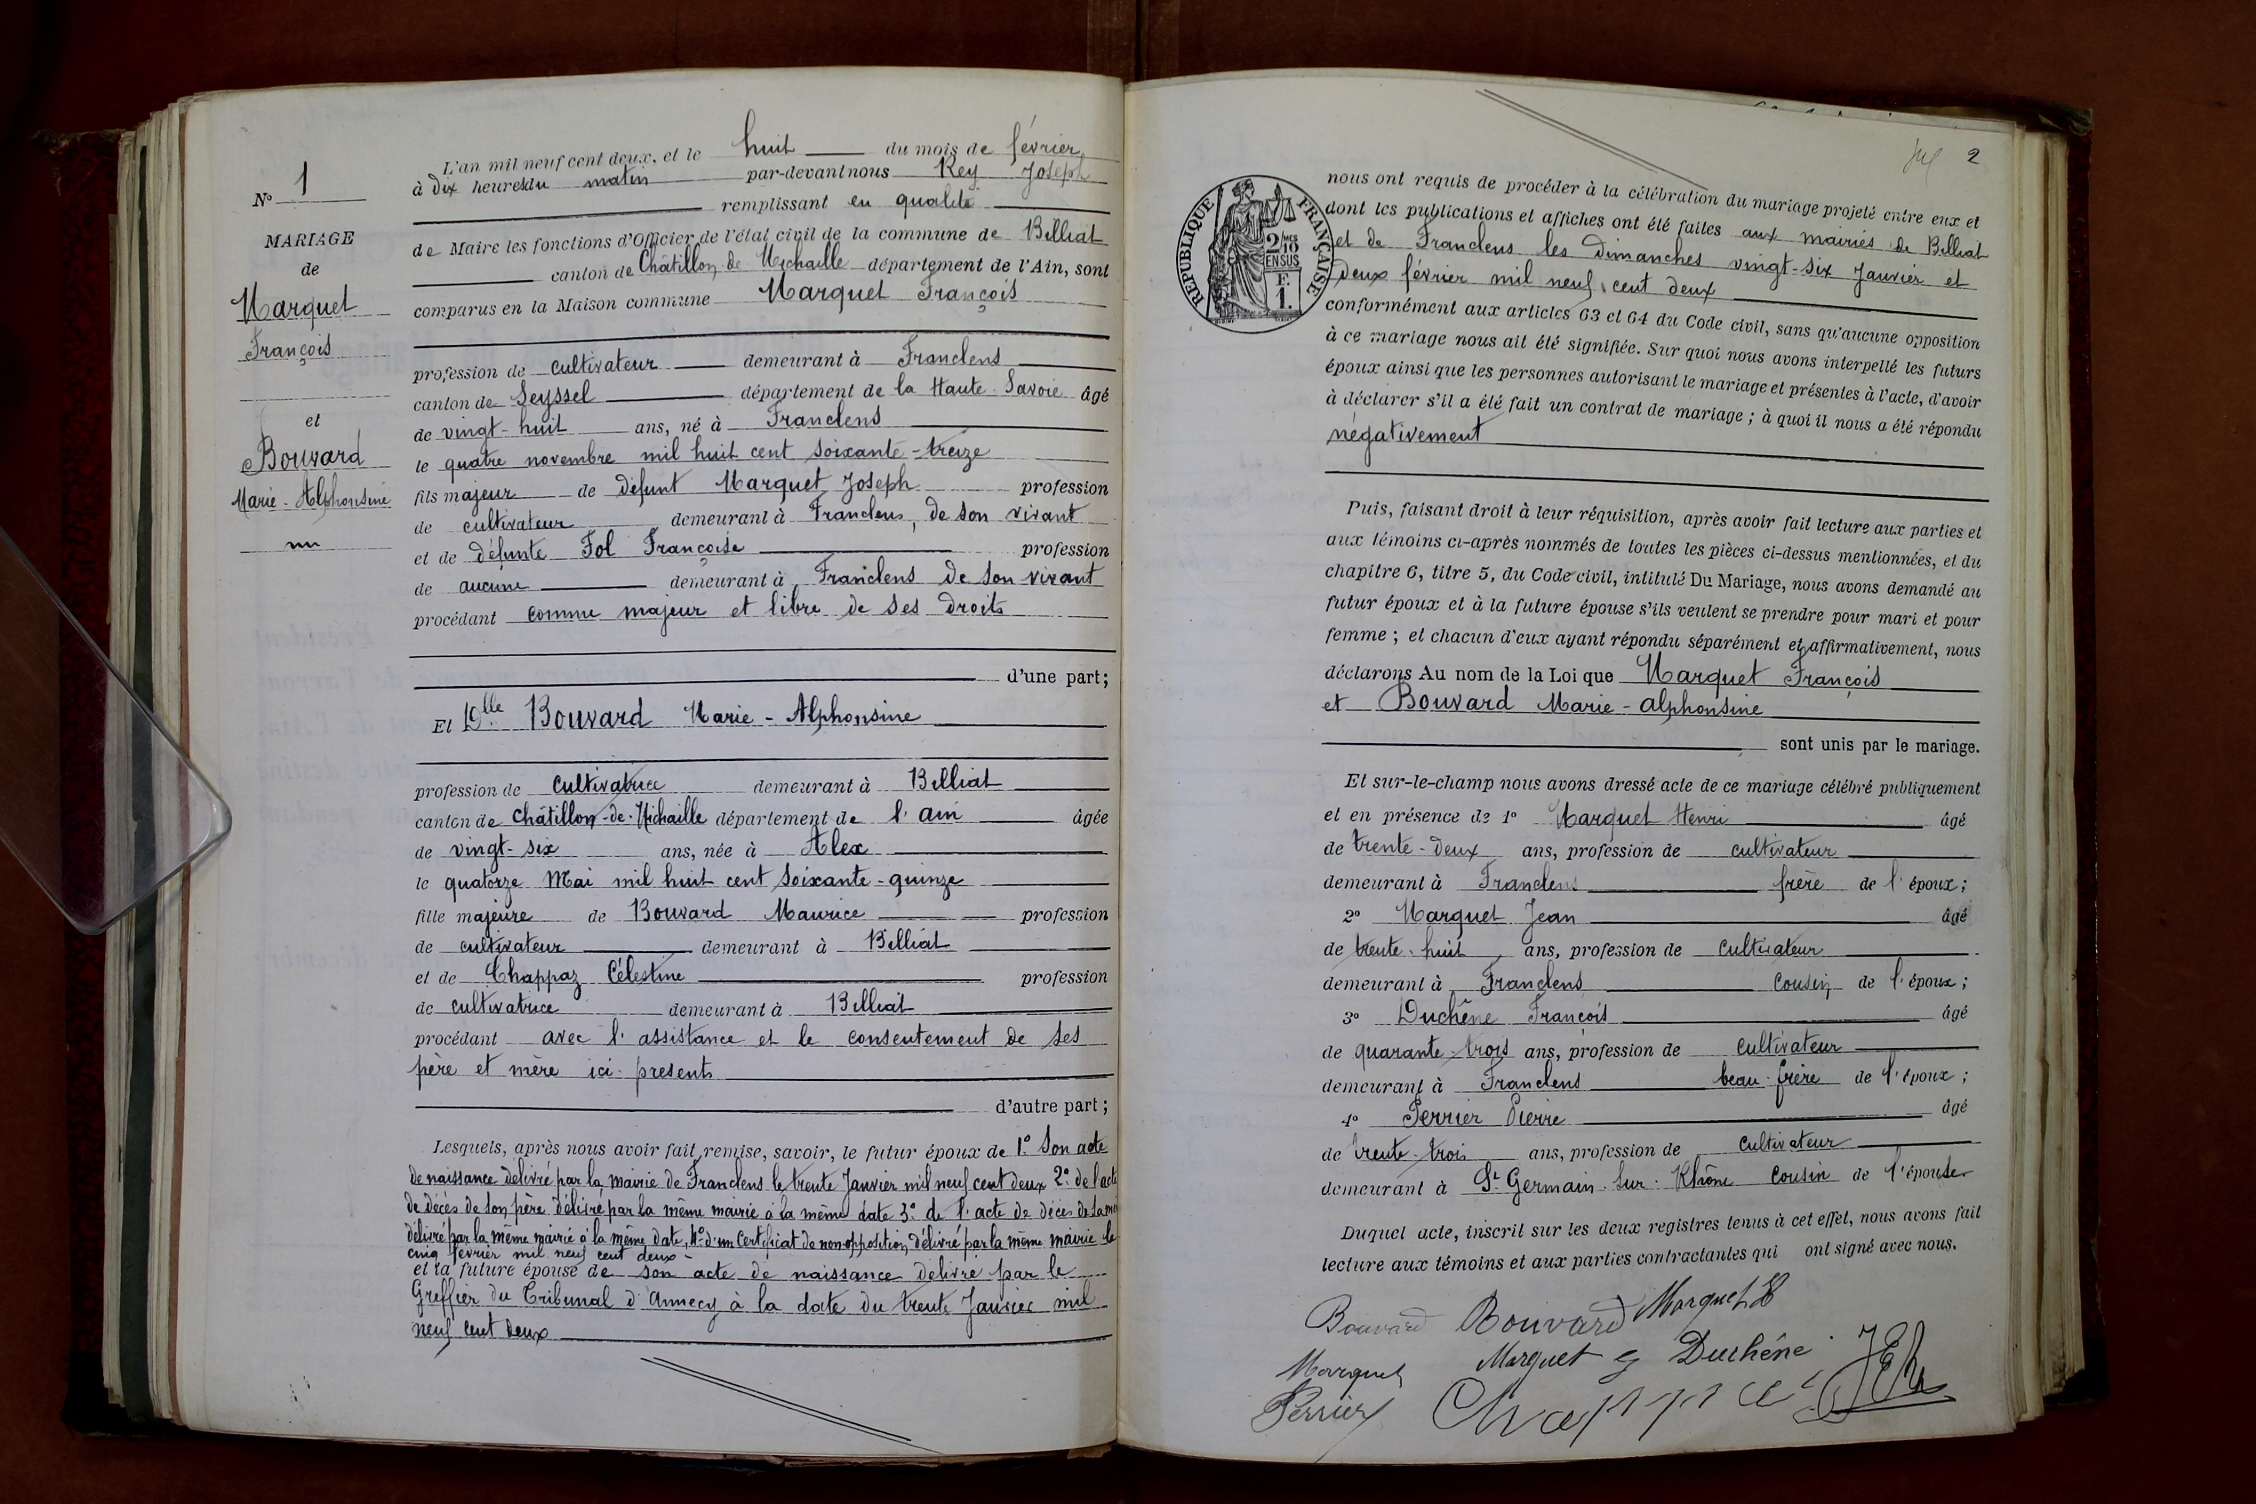 N° 1
MARIAGE
de
Marquet
François
et
Bouvard
Marie-Alphonsine
L'an mil neuf cent deux, et le huit du mois de février
à dix heures du matin par-devant nous Rey Joseph
remplissant en qualité
de Maire les fonctions d'Officier de l'état civil de la commune de Billiat
canton de Châtillon de Michaille département de l'Ain, sont
comparus en la Maison commune Marquet François
profession de cultivateur demeurant à Franclens
canton de Seyssel département de la Haute Savoie âgé
de vingt-huit ans, né à Franclens
le quatre novembre mil huit cent soixante-treize
fils majeur de défunt Marquet Joseph profession
de cultivateur demeurant à Franclens, de son vivant
et de défunte Fol Françoise profession
de aucune demeurant à Franclens de son vivant
procédant comme majeur et libre de ses droits
d'une part;
Et Dlle Bouvard Marie-Alphonsine
profession de cultivatrice demeurant à Billiat
canton de Châtillon-de-Michaille département de l'Ain âgée
de vingt-six ans, née à Alex
le quatorze Mai mil huit cent soixante-quinze
fille majeure de Bouvard Maurice profession
de cultivateur demeurant à Billiat
et de Chappaz Célestine profession
de cultivatrice demeurant à Billiat
procédant avec l'assistance et le consentement de ses
père et mère ici présents
d'autre part;
Lesquels, après nous avoir fait remise, savoir, le futur époux de 1° Son acte
de naissance délivré par la mairie de Franclens le trente Janvier mil neuf cent deux 2° de l'acte
de décès de son père délivré par la même mairie à la même date 3° de l'acte de décès de sa mère
délivré par la même mairie à la même date, 4° d'un Certificat de non opposition délivré par la même mairie le
cinq février mil neuf cent deux
et la future épouse de son acte de naissance délivré par le
Greffier du Tribunal d'Annecy à la date du trente Janvier mil
neuf cent deux
2
REPUBLIQUE FRANÇAISE
2/10 MES
EN SUS
F.
1.
nous ont requis de procéder à la célébration du mariage projeté entre eux et
dont les publications et affiches ont été faites aux mairies de Billiat
et de Franclens les dimanches vingt-six Janvier et
deux février mil neuf cent deux
conformément aux articles 63 et 64 du Code civil, sans qu'aucune opposition
à ce mariage nous ait été signifiée. Sur quoi nous avons interpellé les futurs
époux ainsi que les personnes autorisant le mariage et présentes à l'acte, d'avoir
à déclarer s'il a été fait un contrat de mariage ; à quoi il nous a été répondu
négativement
Puis, faisant droit à leur réquisition, après avoir fait lecture aux parties et
aux témoins ci-après nommés de toutes les pièces ci-dessus mentionnées, et du
chapitre 6, titre 5, du Code civil, intitulé Du Mariage, nous avons demandé au
futur époux et à la future épouse s'ils veulent se prendre pour mari et pour
femme ; et chacun d'eux ayant répondu séparément et affirmativement, nous
déclarons Au nom de la Loi que Marquet François
et Bouvard Marie-alphonsine
sont unis par le mariage.
Et sur-le-champ nous avons dressé acte de ce mariage célébré publiquement
et en présence de 1° Marquet Henri âgé
de trente-deux ans, profession de cultivateur
demeurant à Franclens frère de l'époux;
2° Marquet Jean âgé
de trente-huit ans, profession de cultivateur
demeurant à Franclens cousin de l'époux;
3° Duchêne François âgé
de quarante-trois ans, profession de cultivateur
demeurant à Franclens beau-frère de l'époux;
4° Perrier Pierre âgé
de trente-trois ans, profession de cultivateur
demeurant à St Germain-sur-Rhône cousin de l'épouse
Duquel acte, inscrit sur les deux registres tenus à cet effet, nous avons fait
lecture aux témoins et aux parties contractantes qui ont signé avec nous.
Bouvard Bouvard Marquet H
Marquet Marquet Duchéne
Perrier